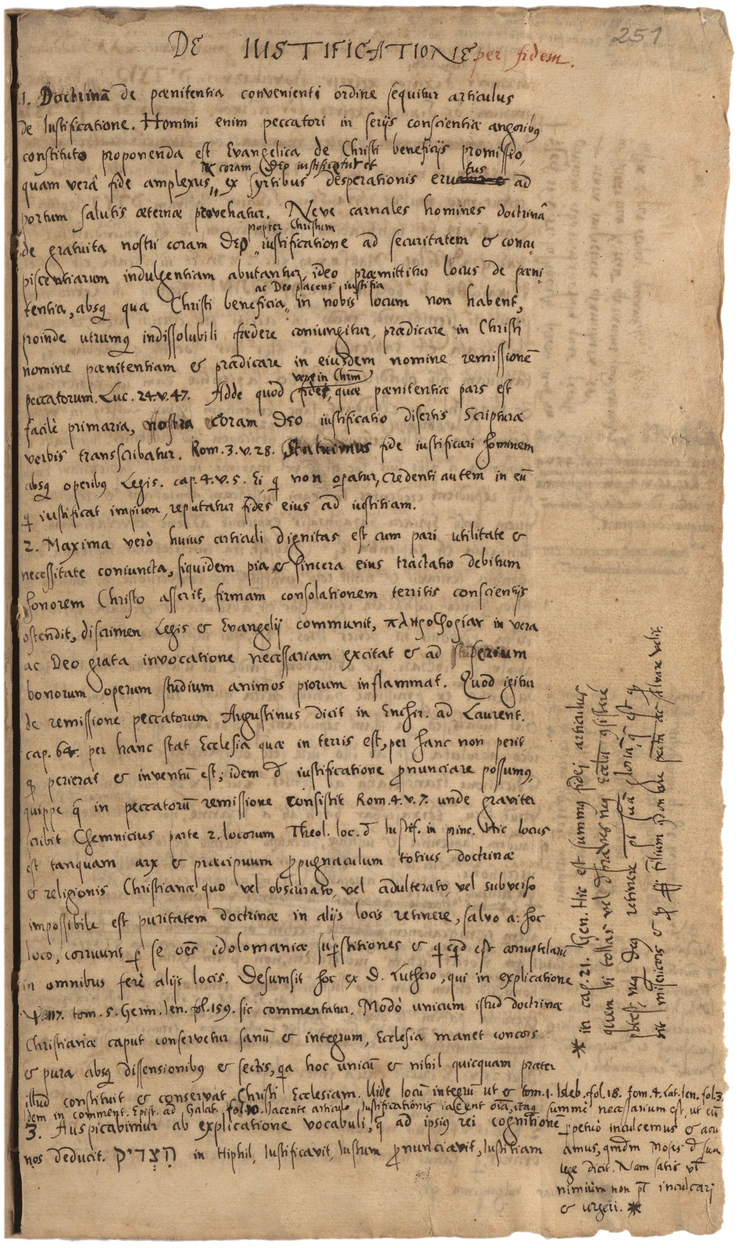 251
DE IUSTIFICATIONE per fidem.
1. Doctrinã de pœnitentia convenienti ordine sequitur articulus
de Iustificatione. Homini enim peccatori in serijs conscientiæ angoribus
constituto proponenda est Evangelica de Christi beneficijs promissio
coram Deo iustificatur et
quam verâ fide amplexus, ex syrtibus desperationis ad
tus
portum salutis æternæ provehatur. Neve carnales homines doctrinã
propter Christum
de gratuita nostri coram Deo iustificatione ad securitatem & concu
piscentiarum indulgentiam abutantur, ideo præmittitur locus de pœni
ac Deo placens iustitia
tentia, absq qua Christi beneficia in nobis locum non habent,
proinde utrumq indissolubili fœdere coniungitur, prædicare in Christi
nomine pœnitentiam & prædicare in eiusdem nomine remissionẽ
vera in Chrm
peccatorum. Luc. 24. v. 47. Adde quod fides, quæ pœnitentiæ pars est
facilè primaria, nostra coram Deo iustificatio disertis Scripturæ
verbis transcribatur. Rom. 3. v. 28. Statuimus fide iustificari hominem
absq operibus Legis. cap. 4. v. 5. Ei q non opatur, credenti autem in eũ
q iustificat impium, reputatur fides eius ad iustitiam.
2. Maxima verò huius articuli dignitas est cum pari utilitate &
necessitate coniuncta, siquidem pia & sincera eius tractatio debitum
honorem Christo asserit, firmam consolationem territis conscientijs
ostendit, discrimen Legis & Evangelij communit, πληροφορίαν in vera
ac Deo grata invocatione necessariam excitat & ad serium
bonorum operum studium animos piorum inflammat. Quod igitur
de remissione peccatorum Augustinus dicit in Enchir. ad Laurent.
cap. 64. per hanc stat Ecclesia quæ in terris est, per hanc non perit
q perierat & inventũ est, idem d iustificatione pronunciare possumus,
quippe q in peccatorũ remissione consistit Rom. 4. v. 7. unde graviter
scribit Chemnicius parte 2. locorum Theol. loc. d Iustif. in princ. Hic locus
est tanquam arx & præcipuum propugnaculum totius doctrinæ
& religionis Christianæ quo vel obscurato, vel adulterato, vel subverso
impossibile est puritatem doctrinæ in alijs locis retinere, salvo a. hoc
loco, corruunt p se oẽs idolomaniæ, supstitiones & q cqd est corruptelarũ
in omnibus ferè alijs locis. Desumsit hoc ex D. Luthero, qui in explicatione
ψ. 117. tom. 5. Germ. Ien. fol. 159. sic commentatur. Modò unicum istud doctrinæ
Christianæ caput conservetur sanũ & integrum, Ecclesia manet concors
& pura absq dissensionibus & sectis, qa hoc unicũ & nihil quicquam præter
illud constituit & conservat Christi Ecclesiam. Vide locũ integrũ ut & tom. 1. Isleb. fol. 18. tom. 4. Lat. Ien. fol. 3.
Idem in comment. Epist. ad Galat. fol. 10. Iacente articulo Iustificationis iacent oĩa, itaq summè necessarium est, ut eũ
perpetuò inculcemus & acu
amus, Moses d sua
lege dicit. Nam satis vel
nimium non pt inculcari
& urgeri. *
3. Auspicabimur ab explicatione vocabuli, q ad ipsius rei cognitionẽ
nos deducit. הצדיק in Hiphil, Iustificavit, Iustum pronunciavit, Iustitiam
* in cap. 21. Gen. Hic est summus fidei articulus
quem si tollas
retinere
misericors & filium